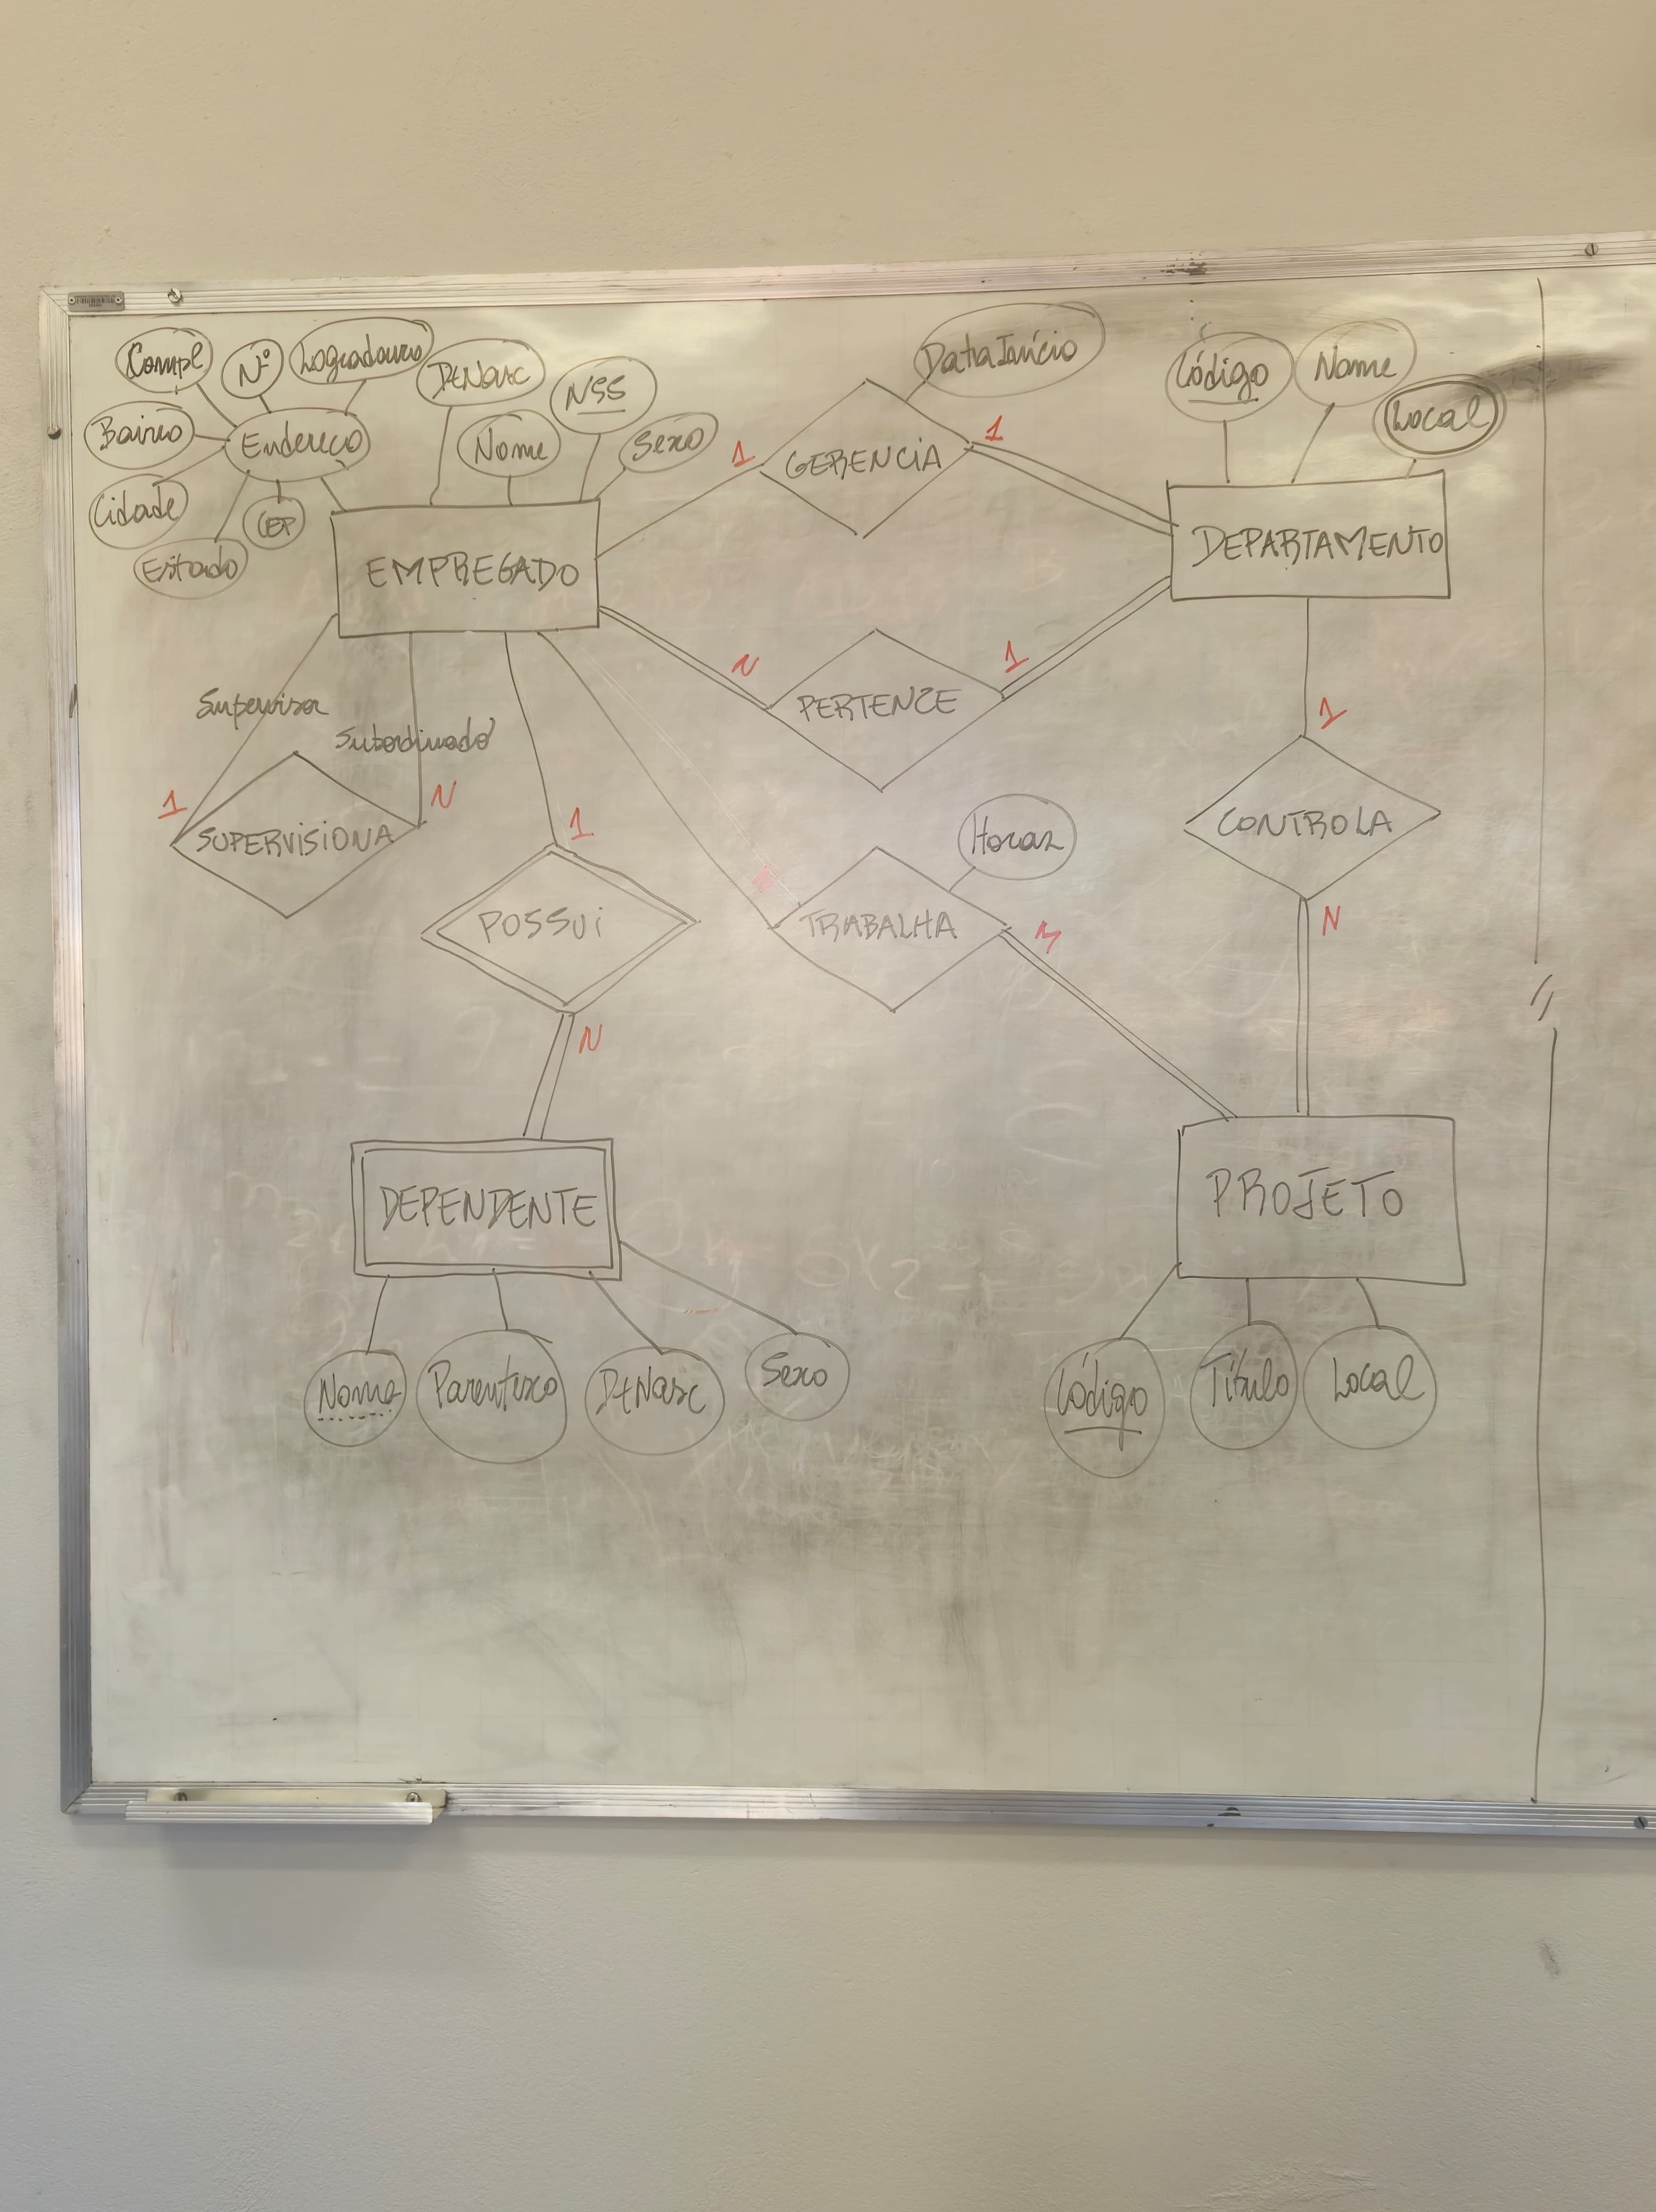 Compl
Nº
Logradouro
DtNasc
NSS
Bairro
Endereço
Nome
Sexo
Cidade
CEP
Estado
EMPREGADO
DataInício
1
GERENCIA
1
Código
Nome
Local
DEPARTAMENTO
N
PERTENCE
1
Supervisor
Subordinado
1
N
SUPERVISIONA
1
POSSUi
N
Horas
N
TRABALHA
M
1
CONTROLA
N
DEPENDENTE
Nome
Parentesco
DtNasc
Sexo
PROJETO
Código
Título
Local